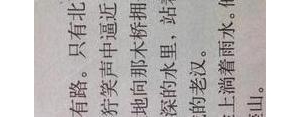 有路。只有北
狞笑声中逼近
地向那木桥拥
深的水里，站着
的老汉。
上淌着雨水。
山。